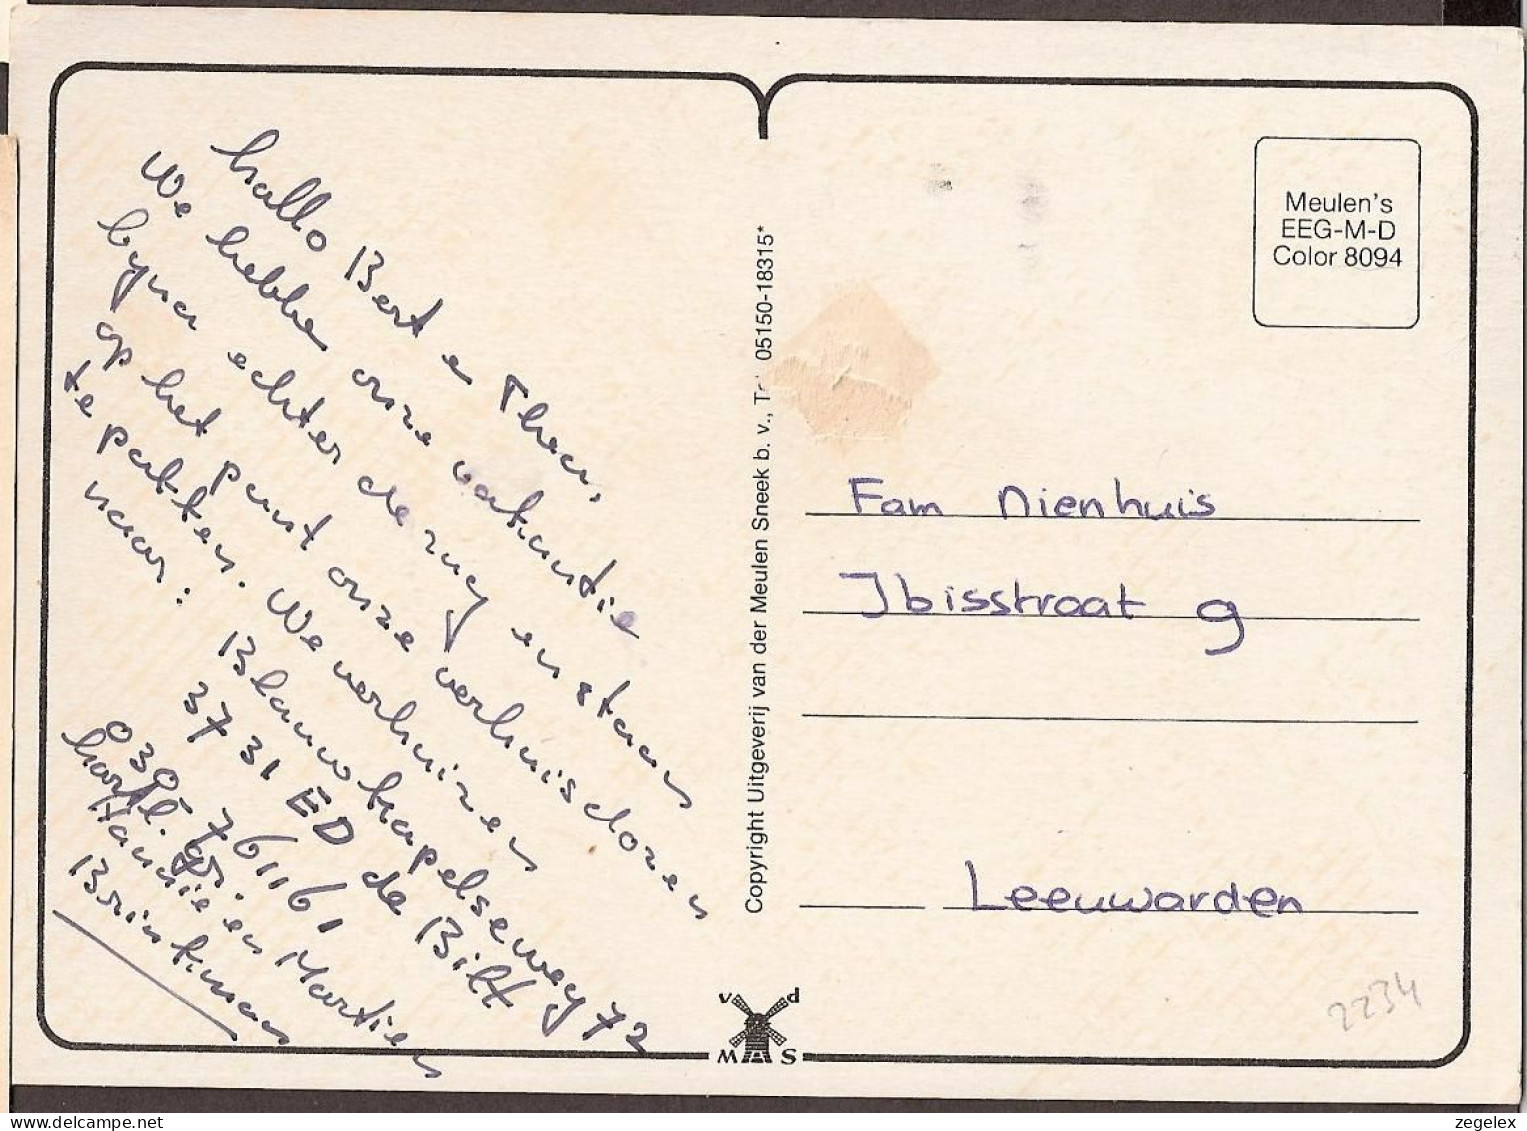 hallo Bert en Thea,
We hebben onze vakantie
byna echter de rug en staan
op het punt onze verhuisdozen
te pakken. We verhuizen
naar:
Blauwkapelseweg 72
3731 ED de Bilt
030 - 761161
hartl. gr.
Hannie en Martien
Brinkman
Copyright Uitgeverij van der Meulen Sneek b. v., Tel. 05150-18315*
v d
M S
Meulen's
EEG-M-D
Color 8094
Fam Nienhuis
Ibisstraat 9
Leeuwarden
2234
delcampe.net
zegelex